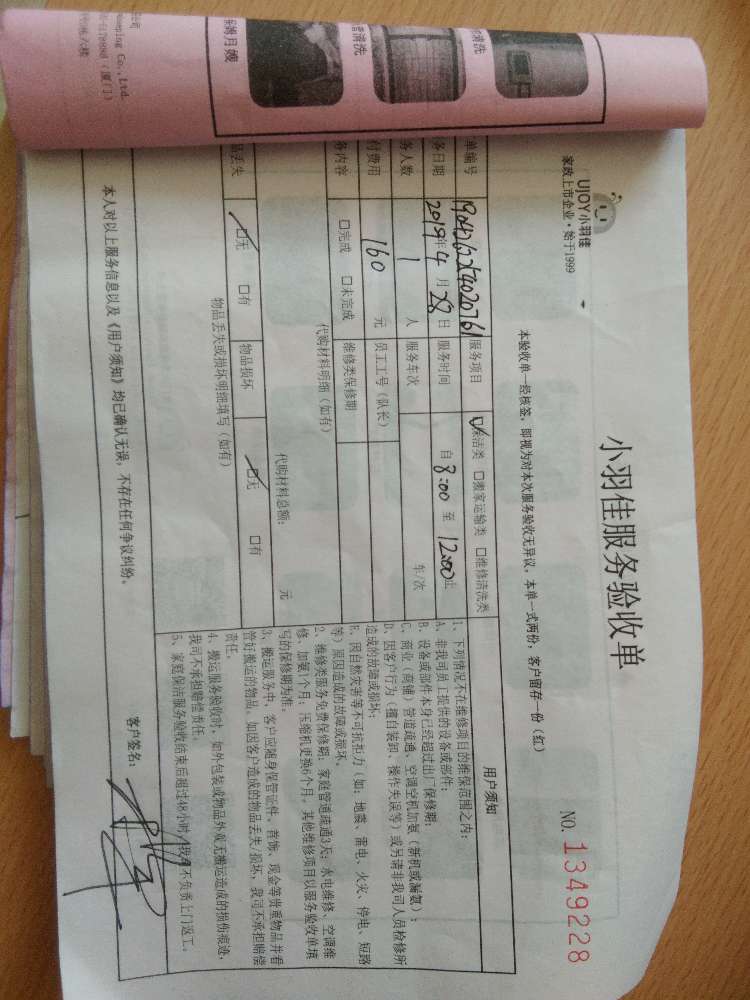 保姆月嫂
清洗
清洗
公司
eeping Co.,Ltd.
UJOY小羽佳
家政上市企业·始于1999
小羽佳服务验收单
NO. 1349228
本验收单一经核签，即视为对本次服务验收无异议，本单一式两份，客户留存一份（红）
单编号 1904262254020761 服务项目 ☑保洁类 □搬家运输类 □维修清洗类
务日期 2019年4月28日 服务时间 自 8:00 至 12:00止
务人数 1 人 服务车次 车/次
付费用 160 元 员工工号（队长）
务内容 □完成 □未完成 维修类保修期
代购材料明细（如有）
代购材料总额： 元
品丢失 ☑无 □有 物品损坏 ☑无 □有
物品丢失或损坏明细填写（如有）
用户须知
1、下列情况不在维修项目的维保范围之内：
A、非我司员工提供的设备或部件；
B、设备或部件本身已经超过出厂保修期；
C、商业（商铺）管道疏通、空调空机加氨（新机或漏氨）；
D、因客户行为（擅自装卸、操作失误等）或另请非我司人员检修所
造成的故障或损坏；
E、因自然灾害等不可抗拒力（如：地震、雷电、火灾、停电、短路
等）原因造成的故障或损坏。
2、维修类服务免费保修期：家庭管道疏通3天；水电维修、空调维
修、加氨1个月；压缩机更换6个月，其他维修项目以服务验收单填
写的保修期为准。
3、搬运服务中，客户应随身保管证件、首饰、现金等贵重物品并看
管好搬运的物品，如因客户造成的物品丢失/损坏，我司不承担赔偿
责任。
4、搬运服务验收时，如外包装或物品外观无搬运造成的损伤痕迹，
我司不承担赔偿责任。
5、家庭保洁服务验收结束后超过48小时，我司不负责上门返工。
本人对以上服务信息以及《用户须知》均已确认无误，不存在任何争议纠纷。
客户签名：